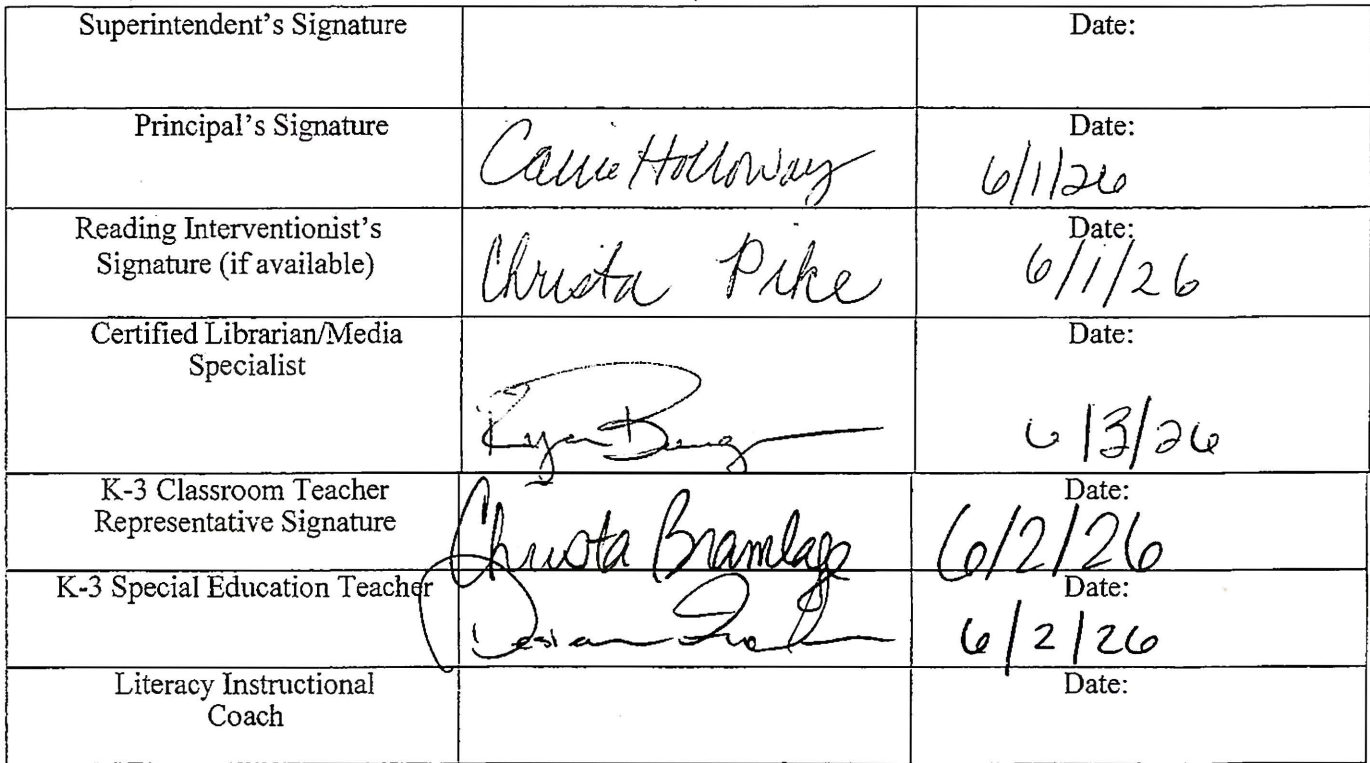 Superintendent's Signature Date:
Principal's Signature Callie Holloway Date: 6/1/26
Reading Interventionist's Signature (if available) Christa Pike Date: 6/1/26
Certified Librarian/Media Specialist Ryan Date: 6/3/26
K-3 Classroom Teacher Representative Signature Christa Bramlage Date: 6/2/26
K-3 Special Education Teacher Date: 6/2/26
Literacy Instructional Coach Date: